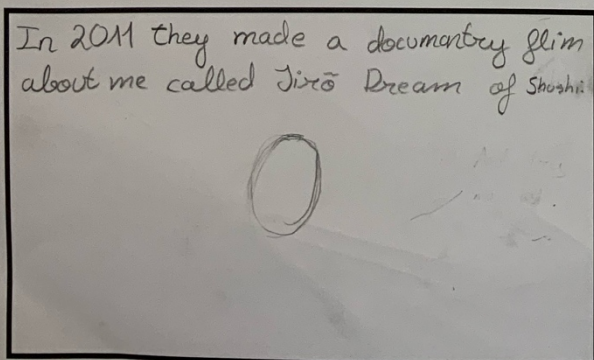 In 2011 they made a documentry flim
about me called Jirō Dream of Shushi.